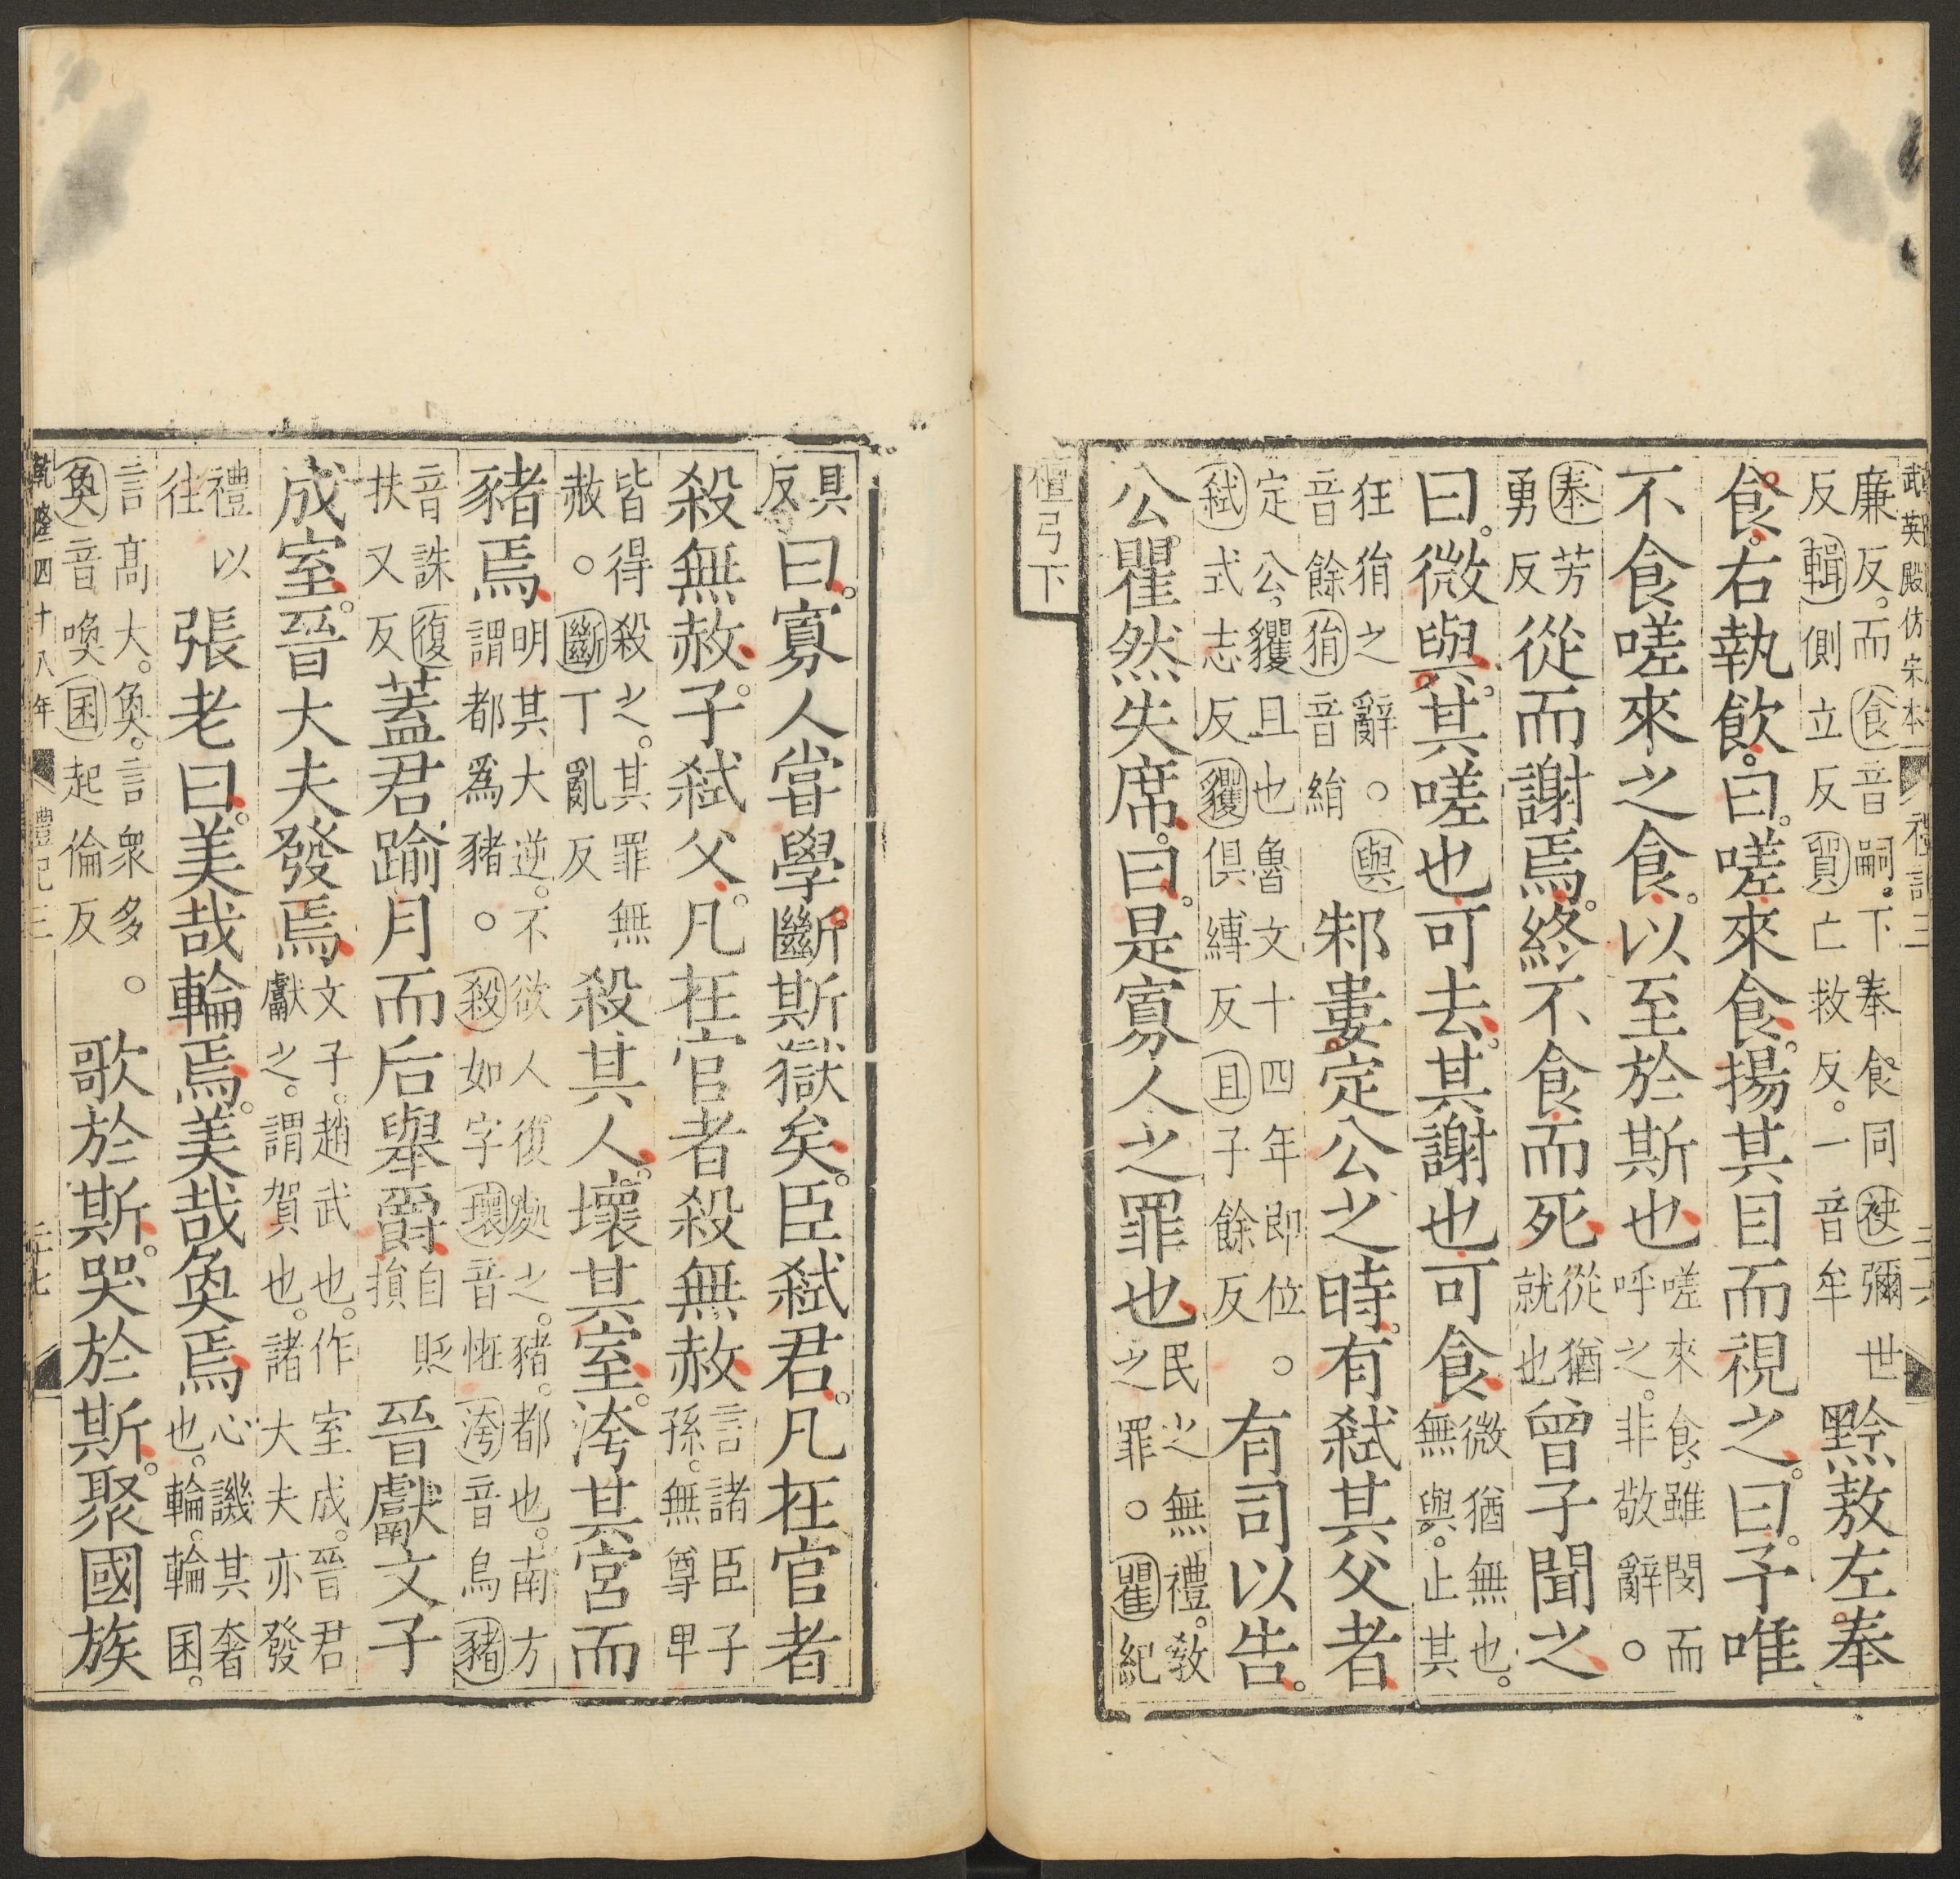 武英殿仿宋本　礼記三　二十六
廉反。而食音嗣。下奉食同袂彌世
反輯側立反貿亡救反。一音牟
黔敖左奉
食。右執飲。曰。嗟來食。揚其目而視之。曰。予唯
不食嗟來之食。以至於斯也
嗟來食。雖閔而
呼之。非敬辭。
奉芳
勇反
從而謝焉。終不食而死
從猶
就也
曾子聞之
曰。微與。其嗟也可去。其謝也可食
微猶無也。
無與。止其
狂狷之辭。與
音餘狷音絹
邾婁定公之時。有弑其父者
定公。貜且也魯文十四年即位。
弑式志反貜俱縛反且子餘反
有司以告。
公瞿然失席。曰。是寡人之罪也
民之無禮。教
之罪。瞿紀
檀弓下
具
反
曰。寡人甞學斷斯獄矣。臣弑君。凡在官者
殺無赦。子弑父。凡在官者殺無赦
言諸臣子
孫。無尊卑
皆得殺之。其罪無
赦。斷丁亂反
殺其人。壞其室。洿其宮而
豬焉
明其大逆。不欲人復處之。豬。都也。南方
謂都爲豬。殺如字壞音怪洿音烏豬
音誅復
扶又反
蓋君踰月而后舉爵
自貶
損
晉獻文子
成室。晉大夫發焉
文子。趙武也。作室成。晉君
獻之。謂賀也。諸大夫亦發
禮以
往
張老曰。美哉輪焉。美哉奐焉
心譏其奢
也。輪。輪囷。
言高大。奐。言衆多。
奐音喚囷起倫反
歌於斯。哭於斯。聚國族
乾隆四十八年　禮記三　二十七